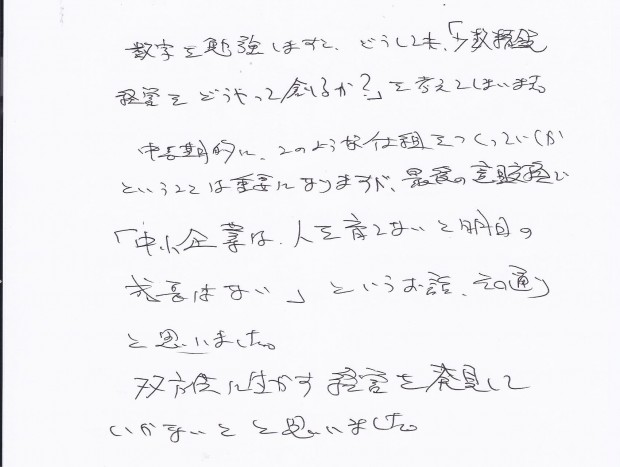 数字を勉強しますと、どうしても、「少数精鋭
経営をどうやって創るか?」を考えてしまいます。
中長期的に、このような仕組をつくっていくか
ということは重要になりますが、最後の
「中小企業は、人を育てないと明日の
成長はない」というお話、その通り
と思いました。
双方使に生かす経営を発見して
いかないと と思いました。